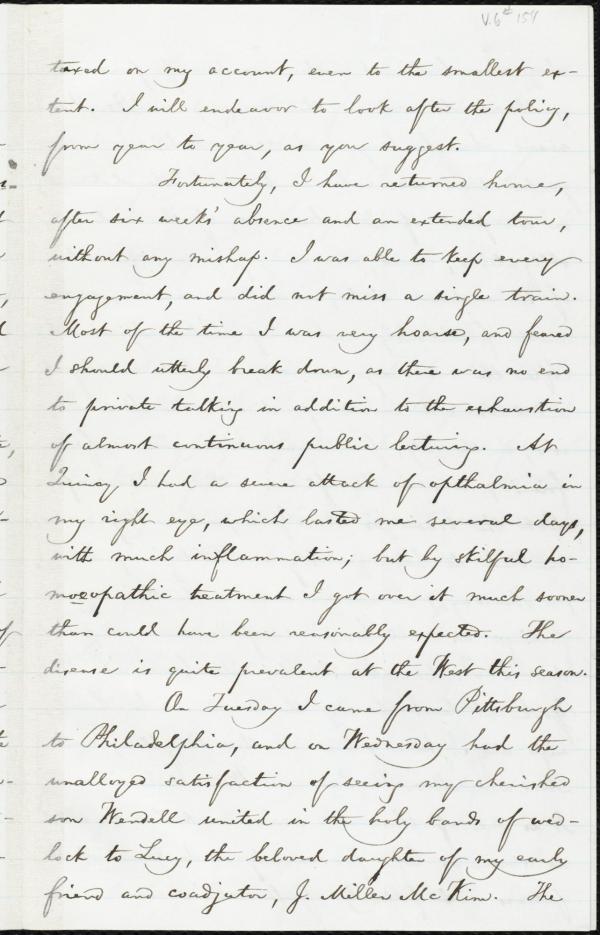 V.6 p.154
taxed on my account, even to the smallest ex-
tent. I will endeavor to look after the policy,
from year to year, as you suggest.
Fortunately, I have returned home,
after six weeks' absence and an extended tour,
without any mishap. I was able to keep every
engagement, and did not miss a single train.
Most of the time I was very hoarse, and feared
I should utterly break down, as there was no end
to private talking in addition to the exhaustion
of almost continuous public lecturing. At
Quincy I had a severe attack of opthalmia in
my right eye, which lasted me several days,
with much inflammation; but by skilful ho-
moeopathic treatment I got over it much sooner
than could have been reasonably expected. The
disease is quite prevalent at the West this season.
On Tuesday I came from Pittsburgh
to Philadelphia, and on Wednesday had the
unalloyed satisfaction of seeing my cherished
son Wendell united in the holy bands of wed-
lock to Lucy, the beloved daughter of my early
friend and coadjutor, J. Miller McKim. The